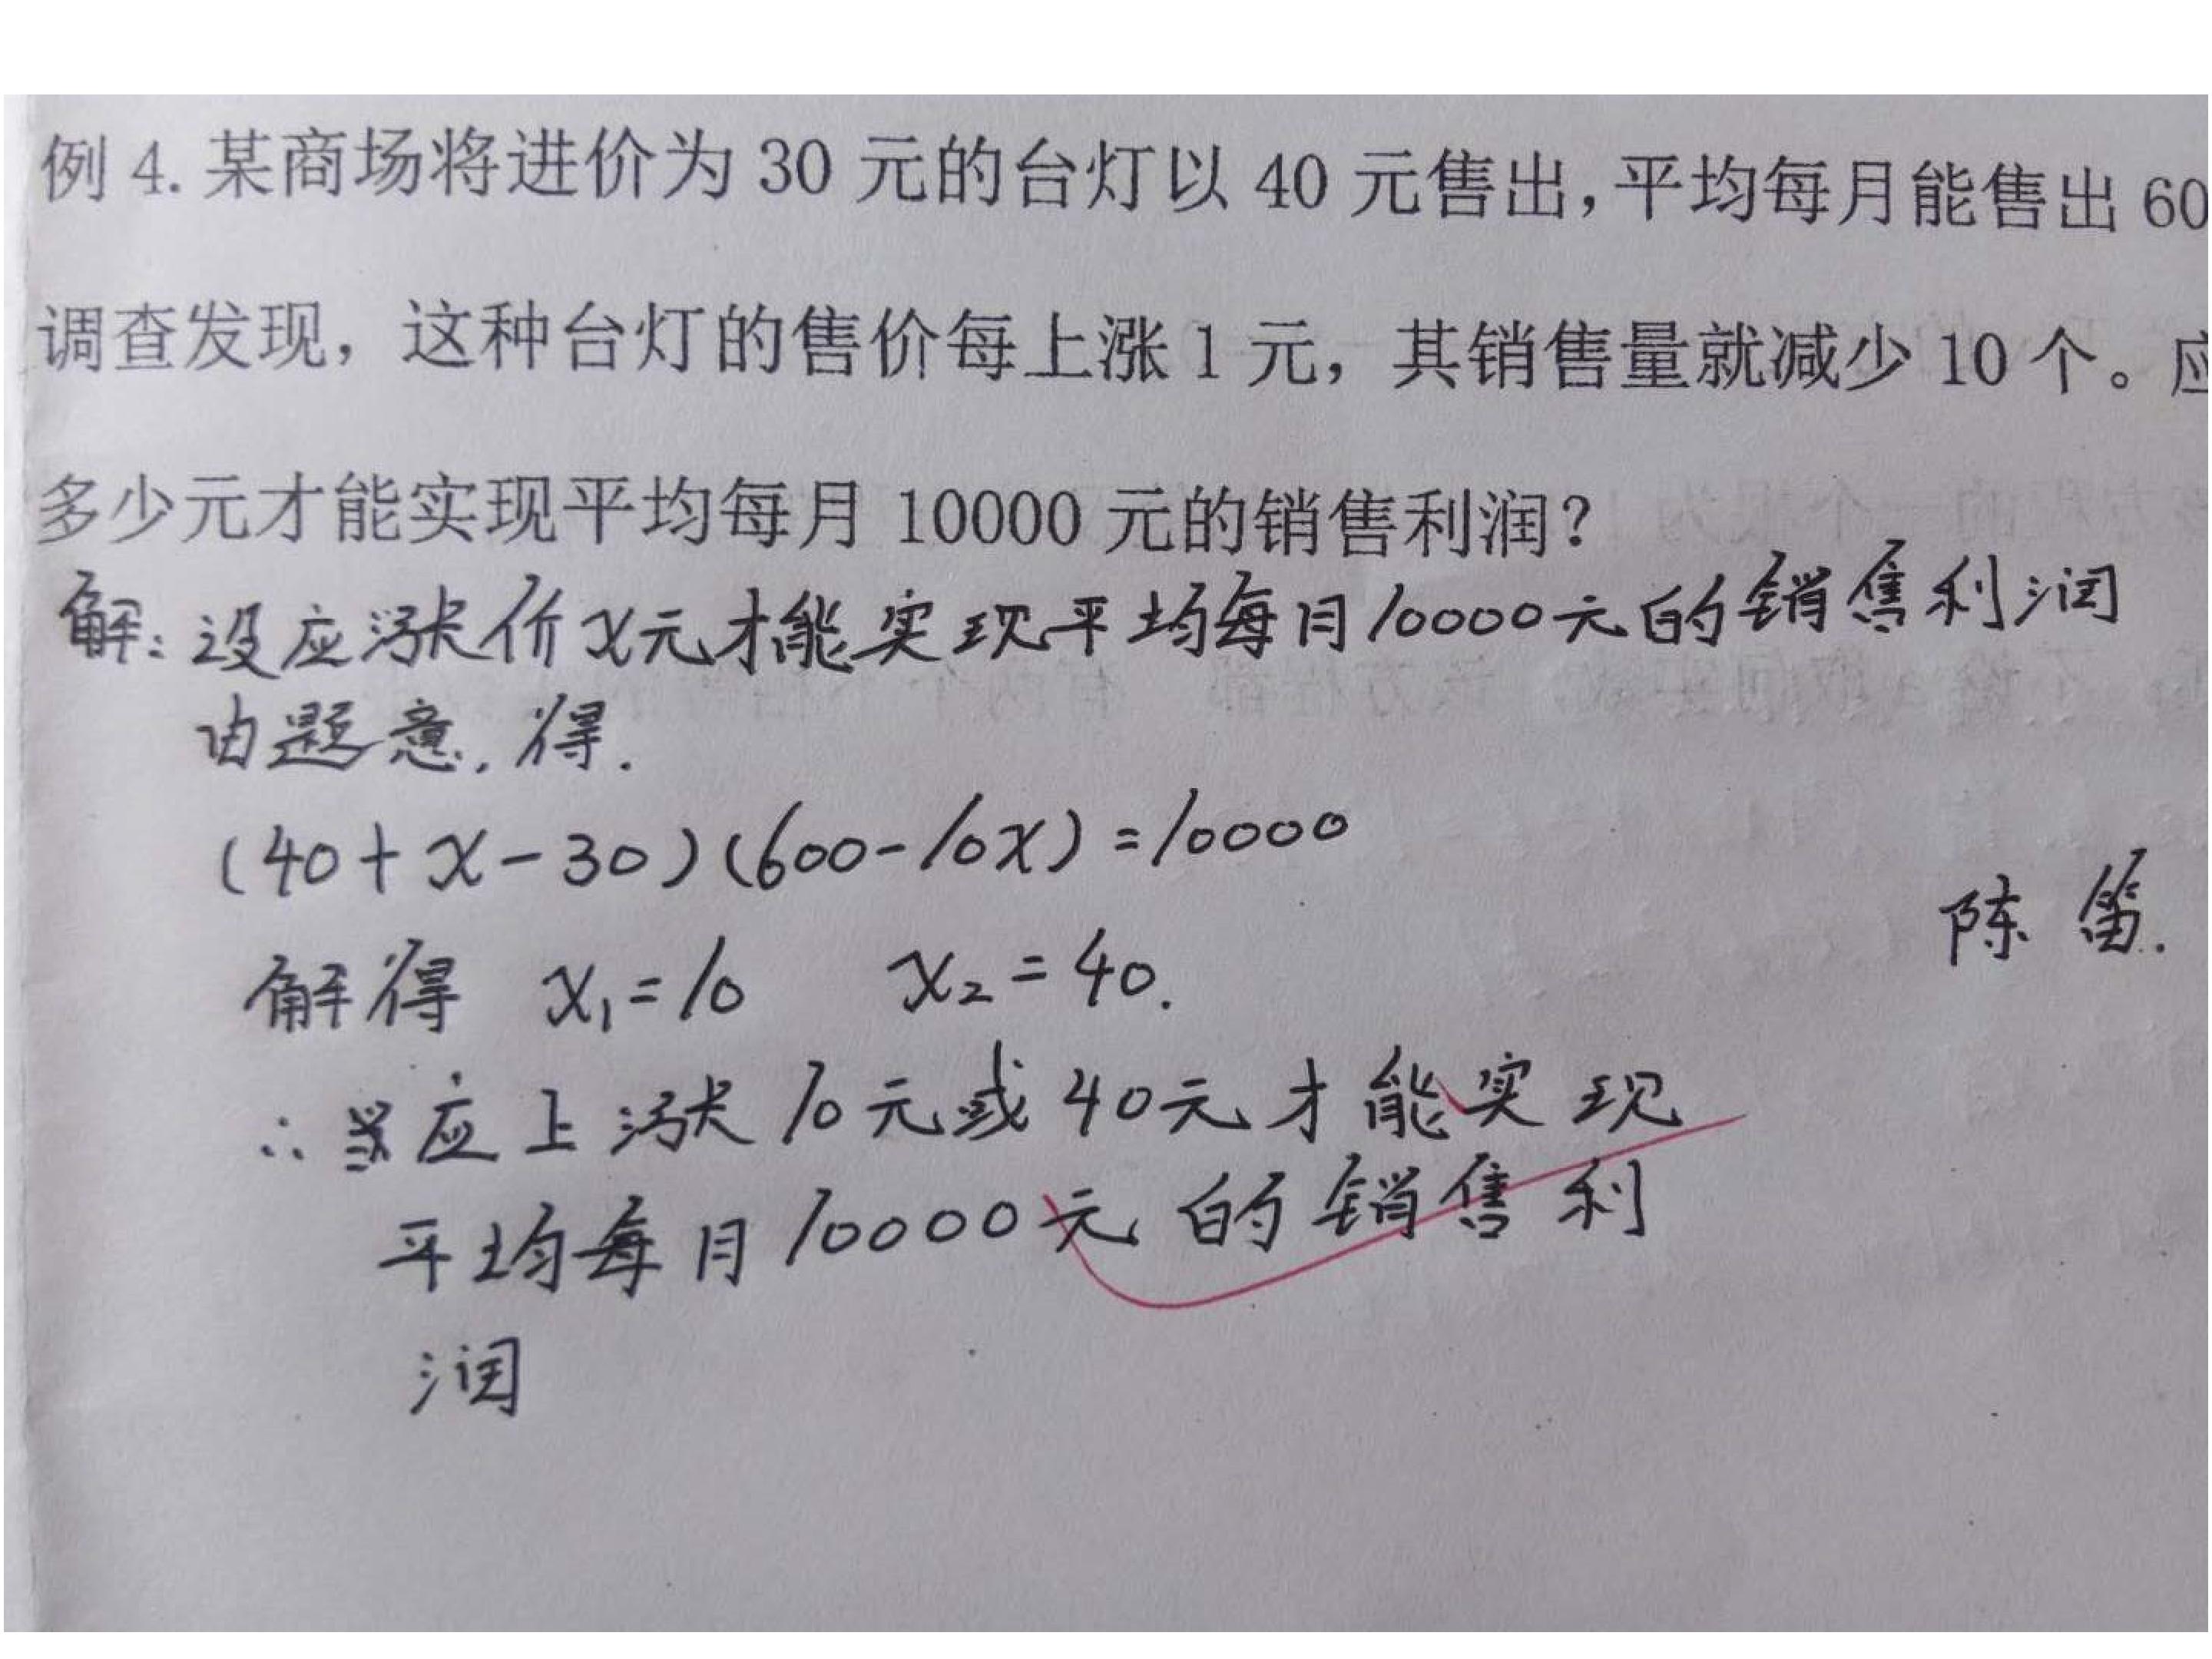 例 4. 某商场将进价为 30 元的台灯以 40 元售出，平均每月能售出 60
调查发现，这种台灯的售价每上涨 1 元，其销售量就减少 10 个。应
多少元才能实现平均每月 10000 元的销售利润？
解：设应涨价x元才能实现平均每月10000元的销售利润
由题意，得.
(40+x-30)(600-10x)=10000
陈笛.
解得 x₁=10 x₂=40.
∴应上涨10元或40元才能实现
平均每月10000元的销售利
润